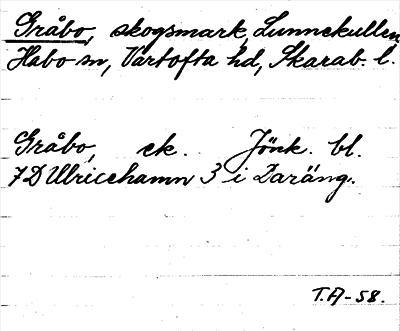 Gråbo, skogsmark, Lunnekullen
Habo sn, Vartofta hd, Skarab. l.
Gråbo, ek. Jönk. bl.
7D Ulricehamn 3 i Daräng.
T.A-58.